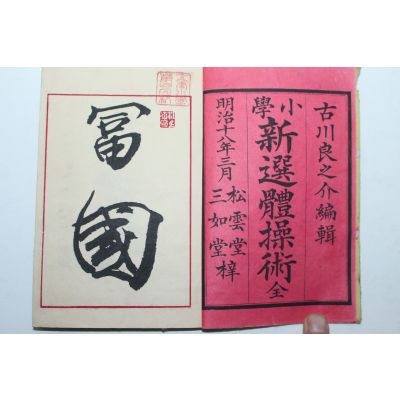 古川良之介編輯
小學
新選體操術 全
明治十八年三月
松雲堂
三如堂 梓
冨國